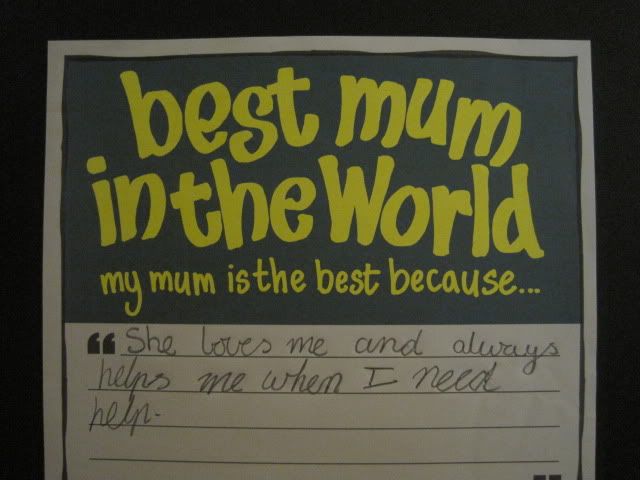 best mum
in the World
my mum is the best because...
“ She loves me and always
helps me when I need
help.
"